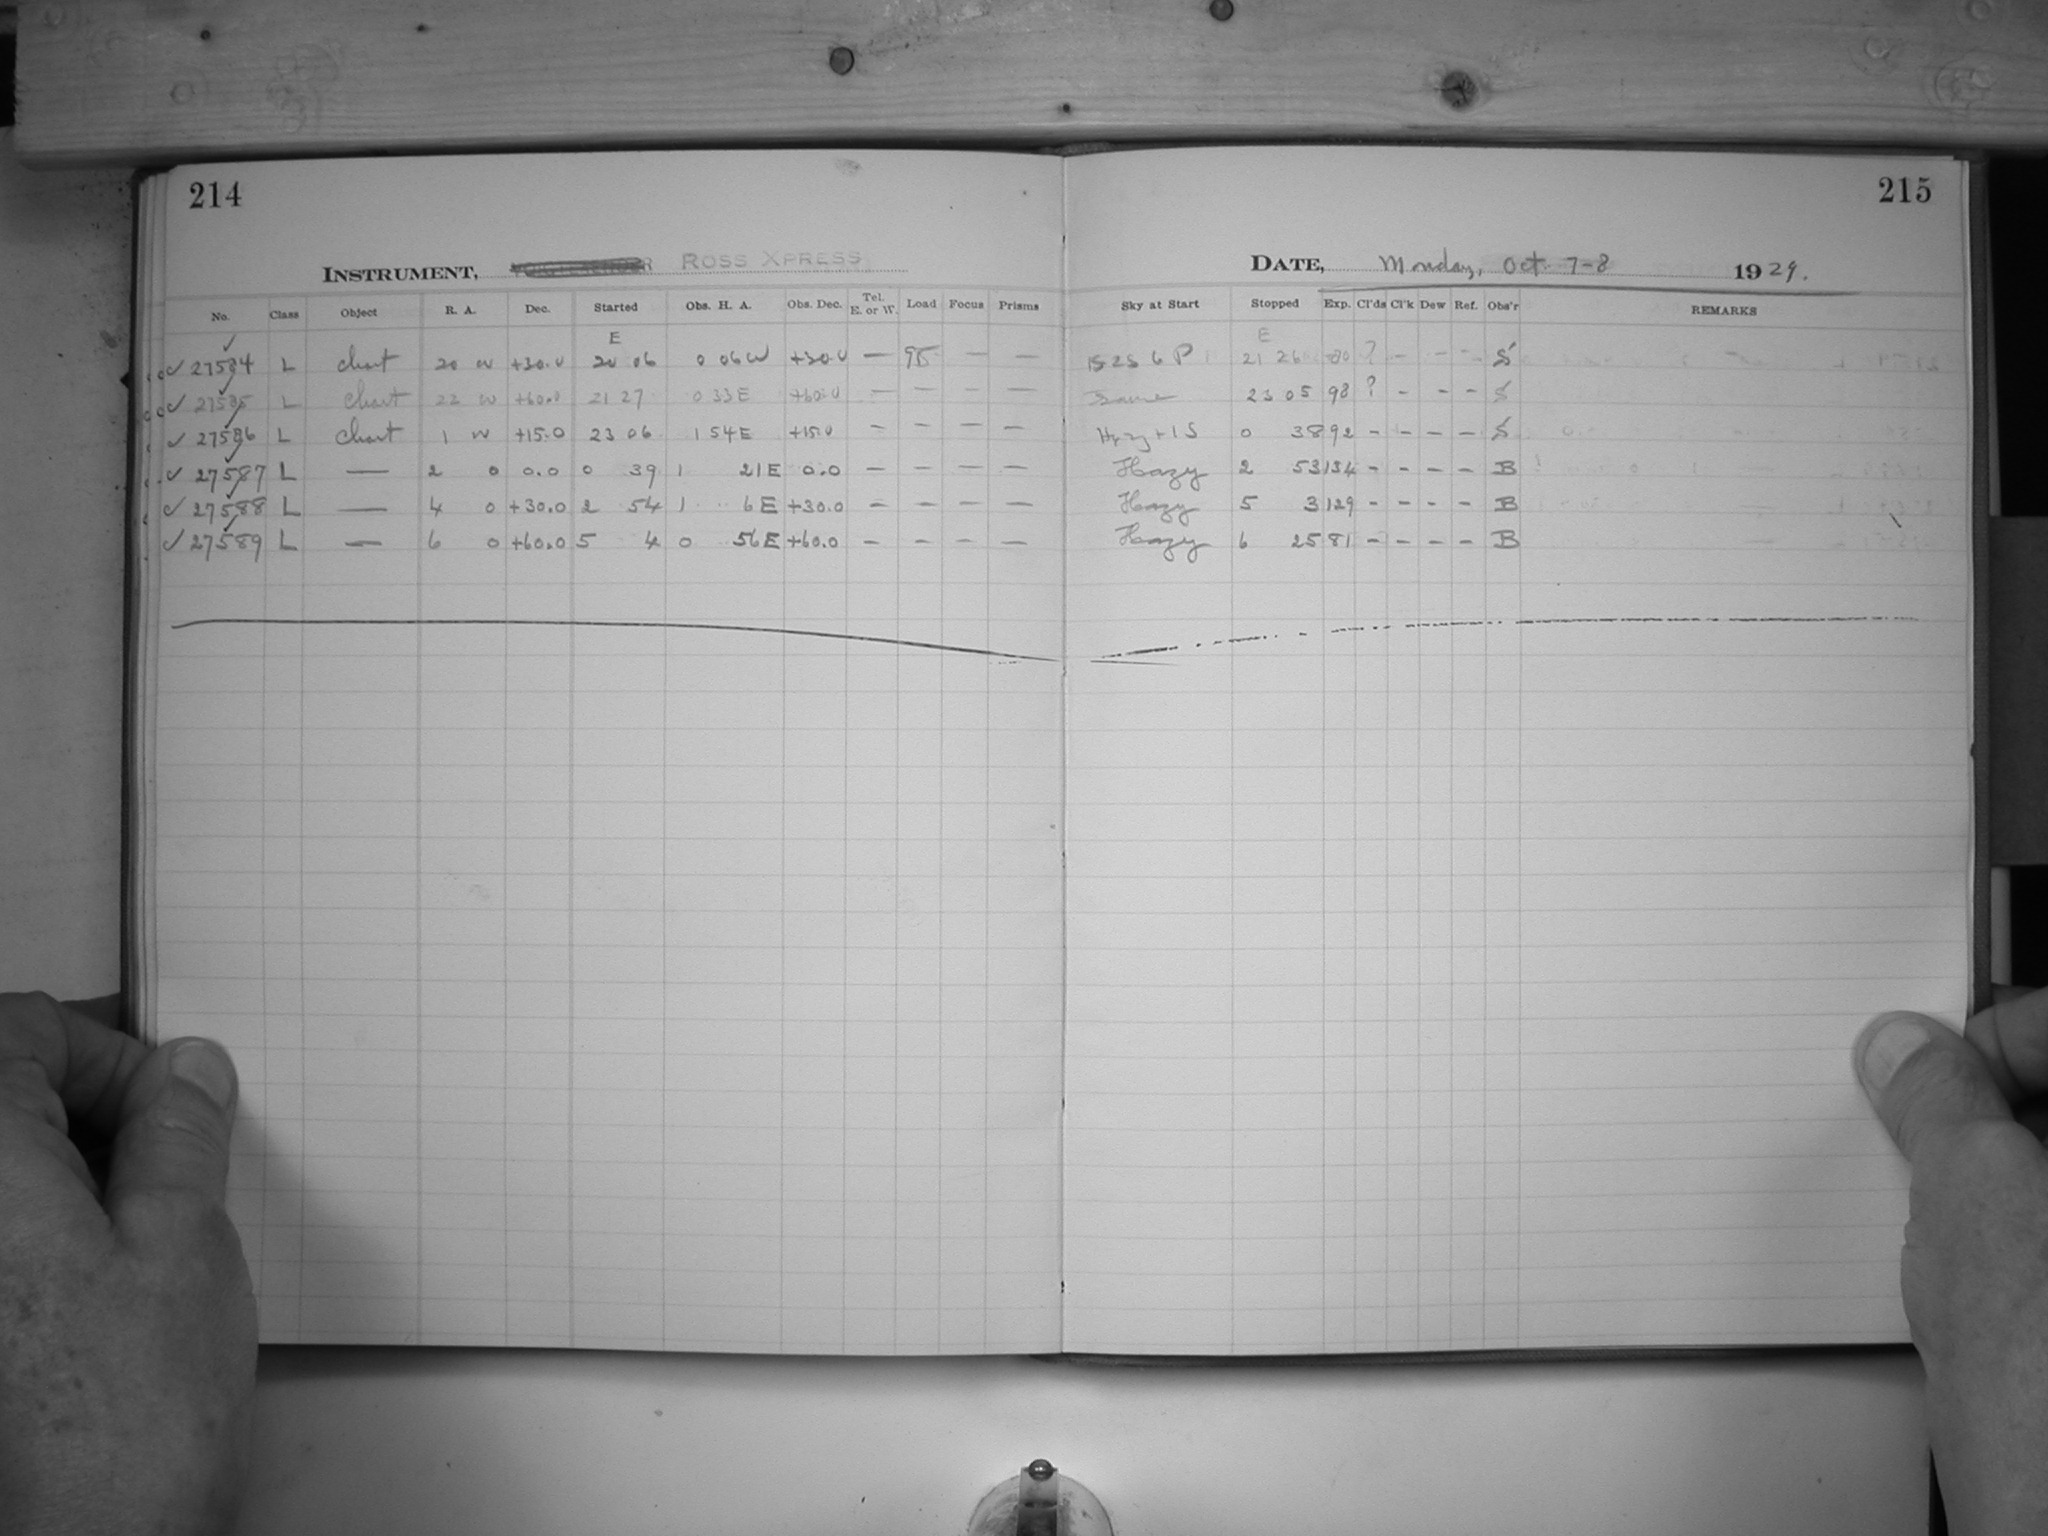 214
INSTRUMENT, ROSS XPRESS
No. Class Object R. A. Dec. Started Obs. H. A. Obs. Dec. Tel. E. or W. Load Focus Prisms
E
✓ 27584 L chart 20 w +30.0 20 06 0 06W +30.0 — 95 — —
✓ 27585 L chart 22 w +60.0 21 27 0 33E +60.0 — — — —
✓ 27586 L chart 1 w +15.0 23 06 1 54E +15.0 — — — —
✓ 27587 L — 2 0 0.0 0 39 1 21E 0.0 — — — —
✓ 27588 L — 4 0 +30.0 2 54 1 6E +30.0 — — — —
✓ 27589 L — 6 0 +60.0 5 4 0 56E +60.0 — — — —
215
DATE, Monday, Oct. 7-8 1929.
Sky at Start Stopped Exp. Cl'ds Cl'k Dew Ref. Obs'r REMARKS
E
2S 6 P 21 26 80 ? - - - S
Same 23 05 98 ? - - - S
Hazy + 1 S 0 38 92 - - - - S
Hazy 2 53 134 - - - - B
Hazy 5 3 129 - - - - B
Hazy 6 25 81 - - - - B